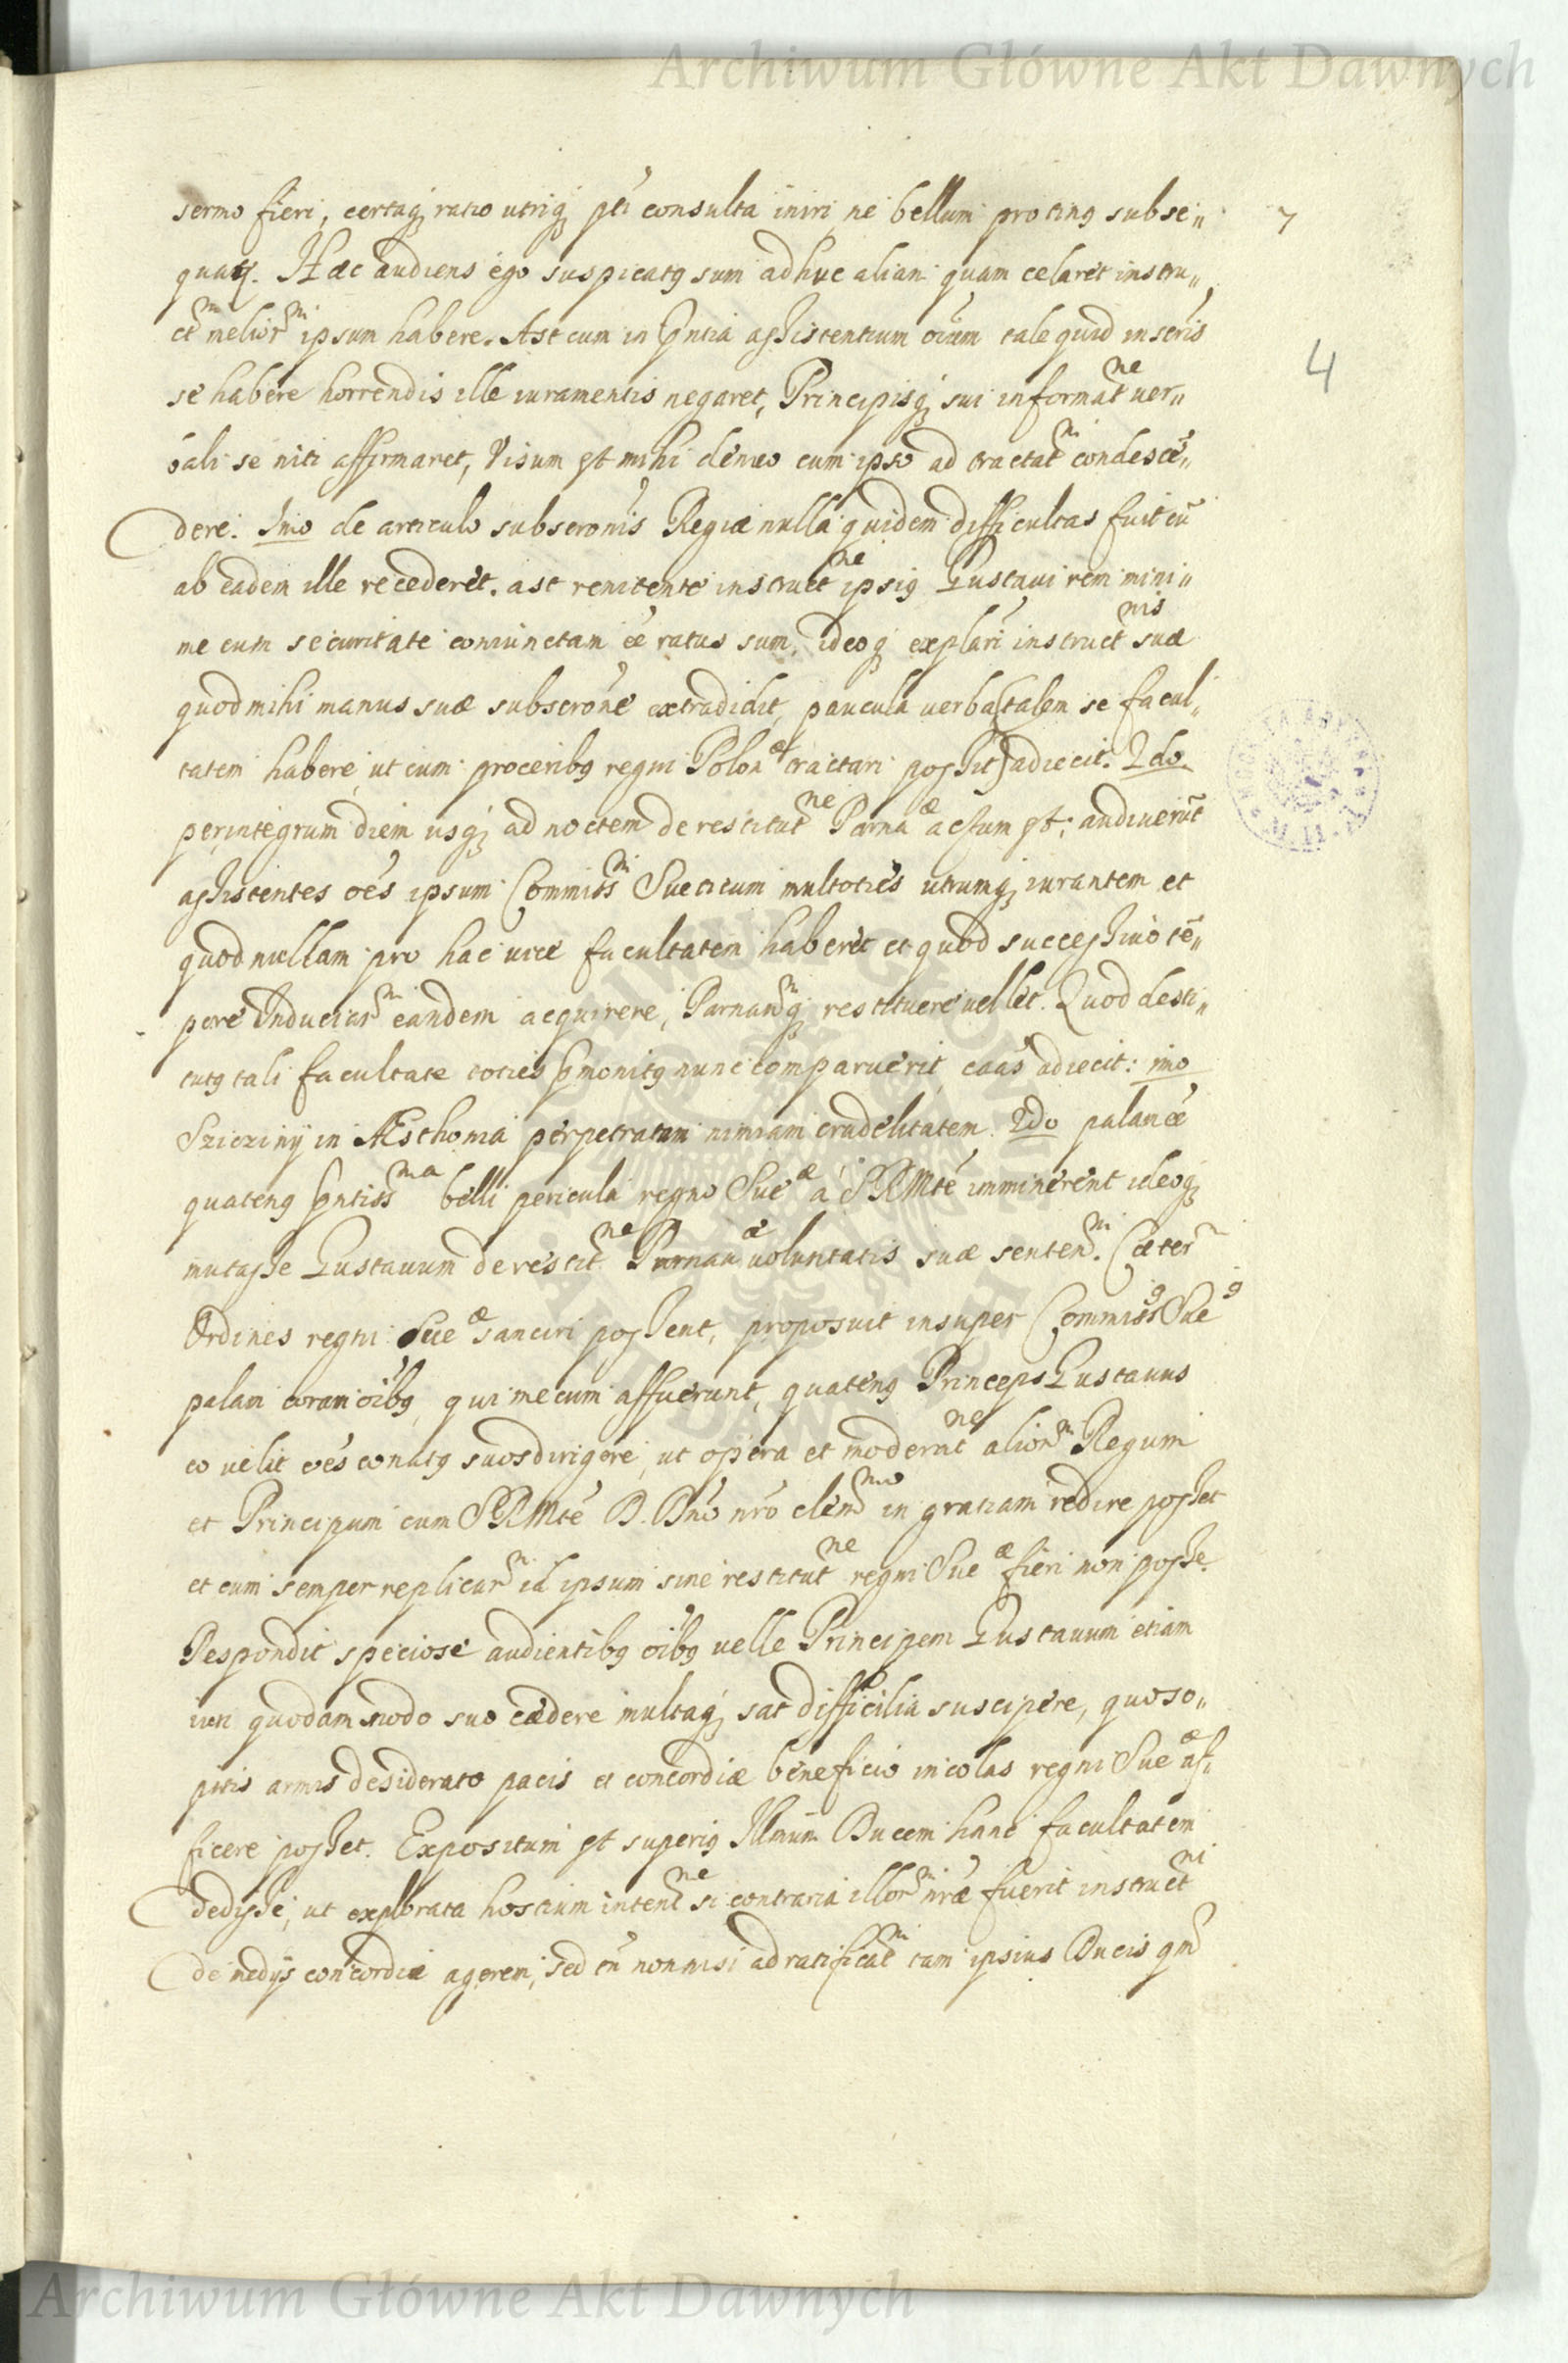 Archiwum Główne Akt Dawnych
sermo fieri, certaq; ratio utriq; pti consulta iniri, ne bellum protinꝰ subse„
7
quatꝛ. Hæc audiens ego suspicatꝰ sum adhuc aliam quam celaret instru„
ctᵐ meliorᵐ ipsum habere. Ast cum in pntia assistentium oium tale quid in scris
4
se habere horrendis ille iuramentis negaret, Principisq; sui informatⁿᵉ ver„
bali se niti affirmaret, Visum est mihi denuo cum ipso ad tractatᵐ condescē„
dere. Imo de articulo subscronis Regiæ nulla quidem difficultas fuit cū
ab eadem ille recederet. ast renitente instructⁿᵉ ipsiꝰ Gustaui rem mini„
me cum securitate coniunctam eē ratus sum, ideoq; explari instructⁿⁱˢ suæ
quod mihi manus suæ subscrone extradidit, paucula uerba (talem se facul„
tatem habere, ut cum proceribꝰ regni Polonᵃᵉ tractari possit) adiecit. 2do
per integrum diem usq; ad noctem de restitutⁿᵉ Parnaᵃᵉ actum est; audiuerūt
assistentes oēs ipsum Commissᵐ Sueticum multoties utrumq; iurantem et
quod nullam pro hac uice facultatem haberet et quod successiuo tē„
pore Induciarᵐ eandem acquirere, Parnamq; restituere uellet. Quod desti„
tutꝰ tali facultate toties pmonitꝰ nunc comparuerit, caās adiecit: imo
Sziczinÿ in Æsthonia perpetratam nimiam crudelitatem. 2do palam eē
quatenꝰ pntissᵐᵃ belli pericula regno Sueᵃᵉ a SRMte imminerent ideoq;
mutasse Gustauum de restitⁿᵉ Parnauᵃᵉ uoluntatis suæ sentenᵐ. Cæter
Ordines regni Sueᵃᵉ sanciri possent, proposuit insuper Commissꝰ Sueꝰ
palam coram oibꝰ, qui mecum affuerunt, quatenꝰ Princeps Gustauus
eo uelit oēs conatꝰ suos dirigere, ut opera et moderatⁿᵉ aliorᵐ Regum
et Principum cum SRMte D. Dno nro clemᵐᵒ in gratiam redire posset
et cum semper replicarᵐ id ipsum sine restitutⁿᵉ regni Sueᵃᵉ fieri non posse.
Respondit speciose audientibꝰ oibꝰ uelle Principem Gustauum etiam
iuri quodammodo suo cædere multaq; sat difficilia suscipere, quo so„
pitis armis desiderato pacis et concordiæ beneficio incolas regni Sueᵃᵉ af„
ficere posset. Expositum est superiꝰ Illmum Ducem hanc facultatem
dedisse, ut explorata hostium intentⁿᵉ si contraria illorᵐ nræ fuerit instructⁿⁱ
de medijs concordiæ agerem, sed tn̄ nonnisi ad ratificatᵐ tam ipsius Ducis qm
Archiwum Główne Akt Dawnych